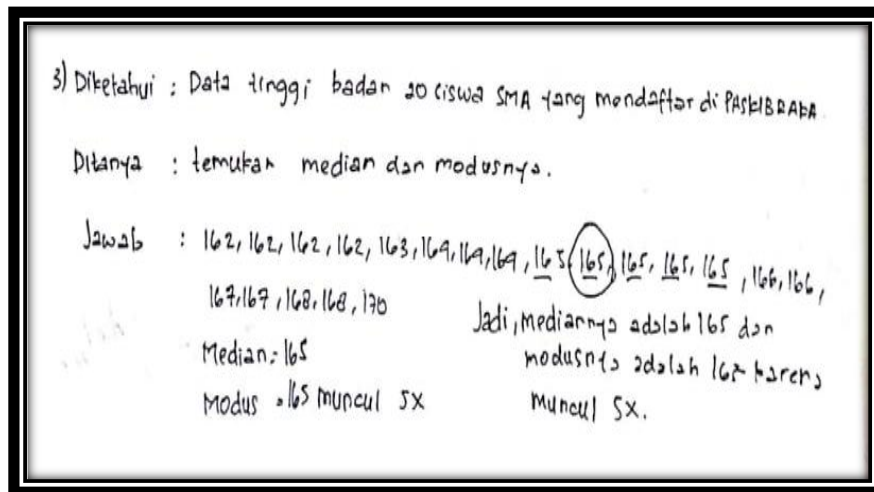 3) Diketahui : Data tinggi badan 20 ciswa SMA yang mendaftar di PASKIBRAKA
Ditanya : temukan median dan modusnya.
Jawab : 162, 162, 162, 162, 163, 164, 164, 164, 165, 165, 165, 165, 165, 166, 166,
167, 167, 168, 168, 170
Median : 165
Modus : 165 muncul 5x
Jadi, mediannya adalah 165 dan
modusnya adalah karena
muncul 5x.